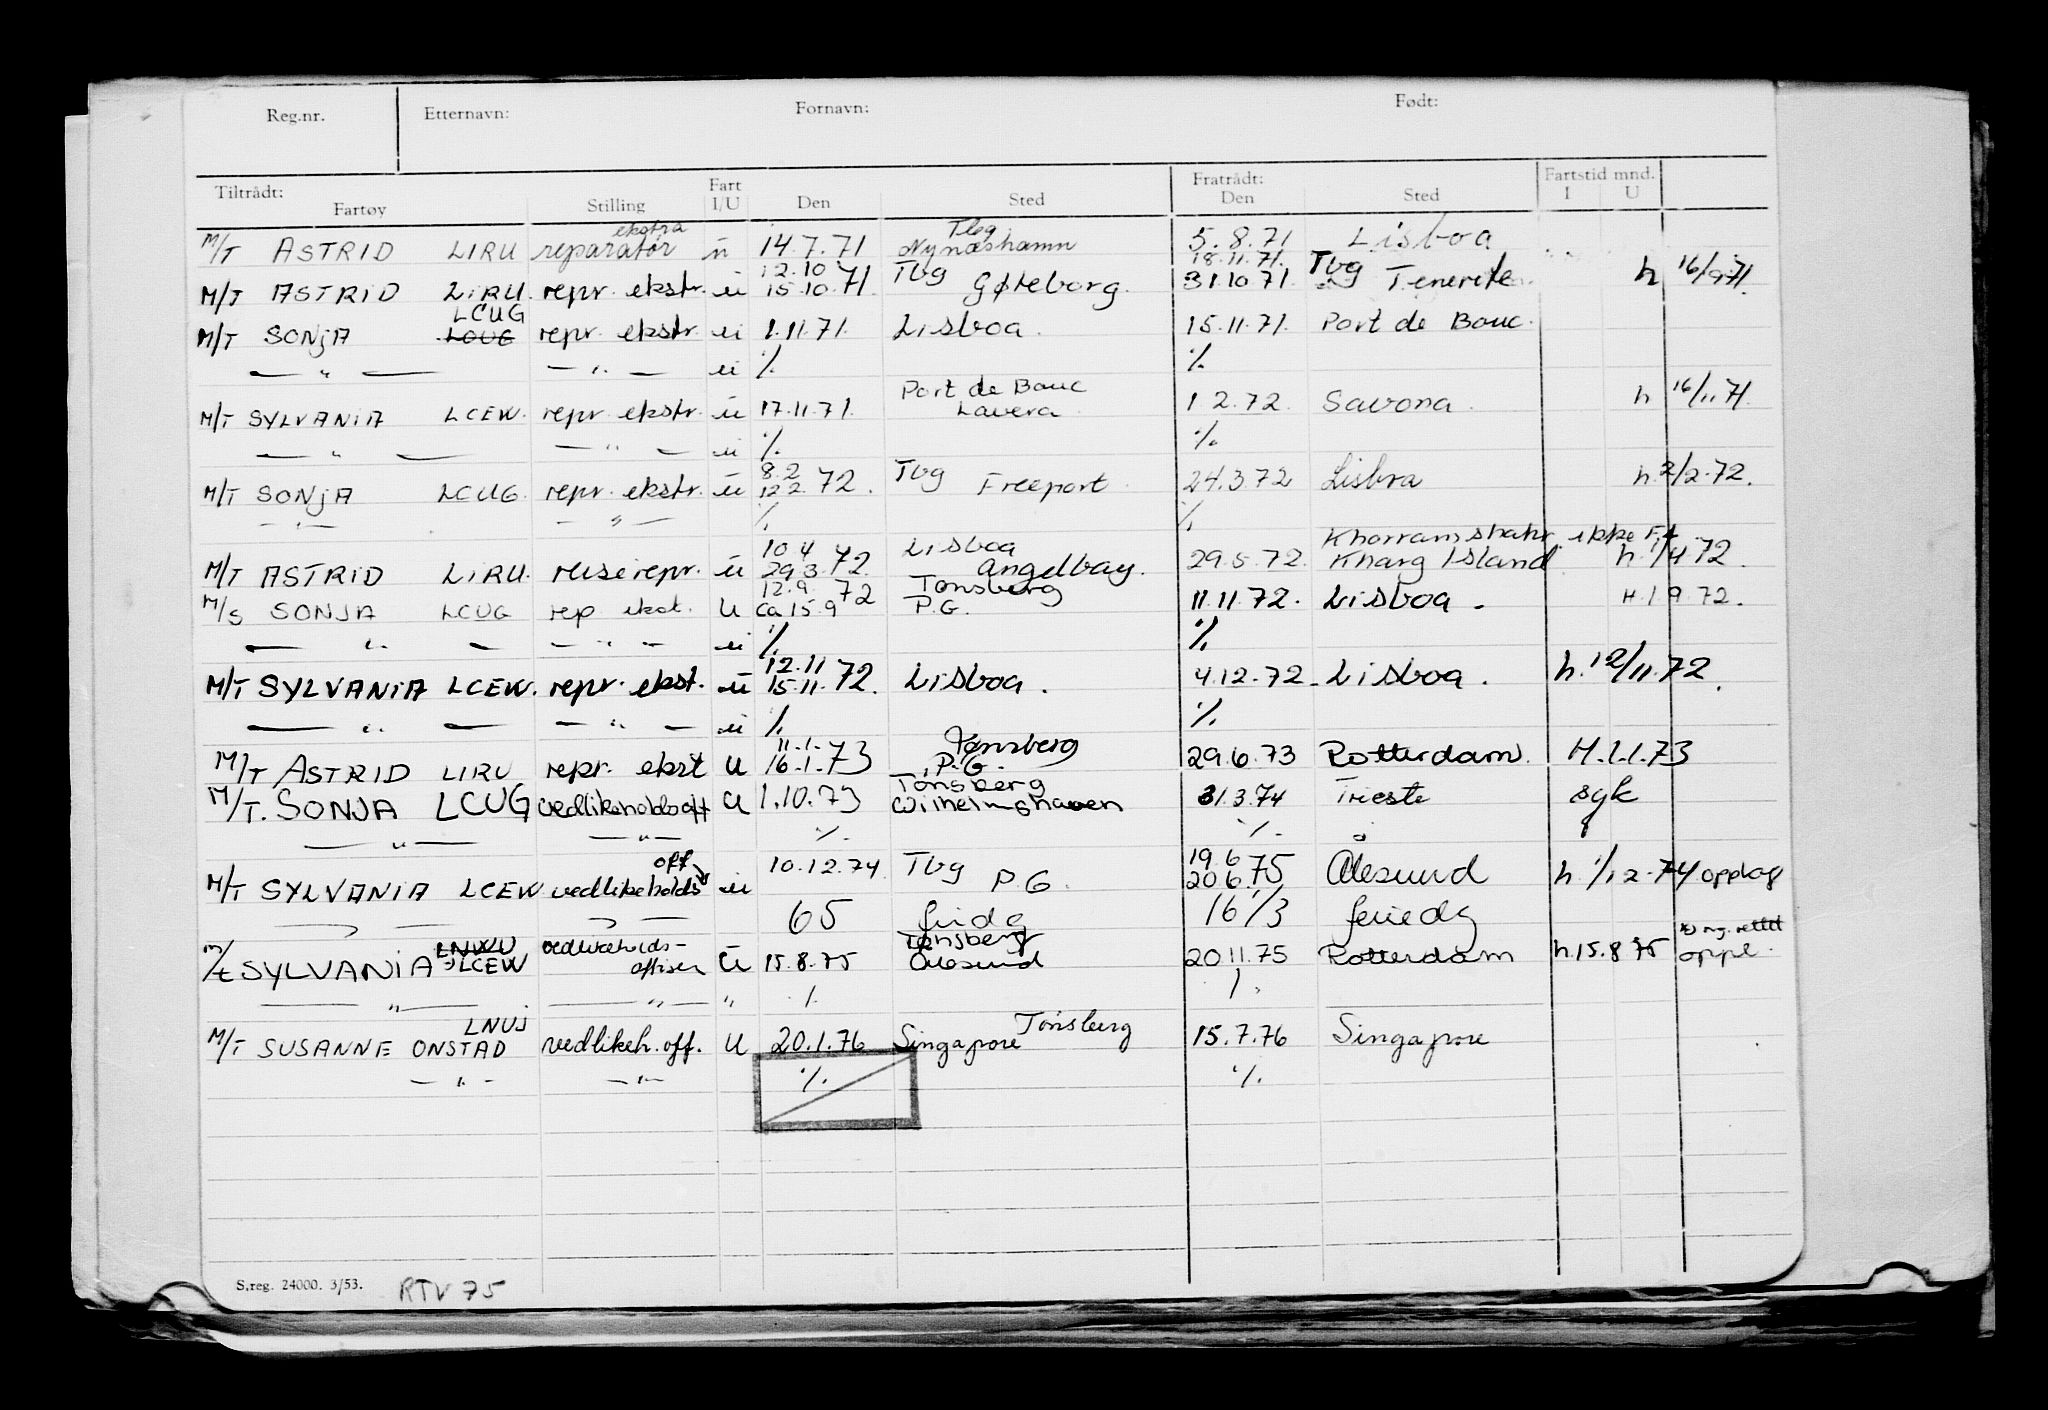 Reg.nr. Etternavn: Fornavn: Født:
Tiltrådt: Fartøy Stilling Fart I/U Den Sted Fratrådt: Den Sted Fartstid mnd. I U
M/T ASTRID LIRU reparatør ekstra ü 14.7.71 Tbg Nynæshamn 5.8.71 Lisboa
M/T ASTRID LIRU. repr. ekstr. ü 12.10 15.10.71. Tbg Gøteborg. 18.11.71. 31.10.71. Tbg Tenerife h 16/9 71.
M/T SONJA LCUG LOUG repr. ekstr. ü 1.11.71. Lisboa. 15.11.71. Port de Bouc.
— " — — " — ü ·/. ·/.
M/T SYLVANIA LCEW. repr. ekstr. ü 17.11.71. Port de Bouc Lavera 1 2.72. Savona. h 16/11.71.
— " — — " — ü ·/. ·/.
M/T SONJA LCUG. repr. ekstr. ü 8.2 12.2.72. Tbg Freeport. 24.3.72 Lisboa h. 2/2.72.
— " — — " — ·/. ·/.
M/T ASTRID LIRU. reiserepr. ü 10.4 29.3.72. Lisboa Angelbay. 29.5.72. Khorramshahr. ikke F.t. Kharg Island h. 1/4 72
M/S SONJA LCUG rep ekst. U 12.9. ca 15.9 72 Tønsberg P.G. 11.11.72. Lisboa. H.1.9.72.
— " — — " — ü ·/. ·/.
M/T SYLVANIA LCEW. repr. ekst. ü 12.11 15.11.72. Lisboa. 4.12.72. Lisboa. h. 12/11.72.
— " — — " — ü ·/. ·/.
M/T ASTRID LIRU repr. ekst U 11.1. 16.1.73 Tønsberg P.G. 29.6.73 Rotterdam. H.1.1.73
M/T. SONJA LCUG vedlikeholdsoff U 1.10.73 Tønsberg Wilhelmshaven 31.3.74 Trieste syk
— " — — " — ·/. ·/.
M/T SYLVANIA LCEW vedlikeholds off ü 10.12.74 Tbg P.G. 19.6 20.6.75 Ålesund h. 1/12.74 opplag
— " — 65 16 1/3 feriedg
M/T SYLVANIA LNWU LCEW vedlikeholds-offiser U 15.8.75 Tønsberg Ålesund 20.11.75 Rotterdam h.15.8 75 oppl.
— " — — " — " ·/. ·/.
M/T SUSANNE ONSTAD LNUJ vedlikeh.off. U 20.1.76 Singapore Tønsberg 15.7.76 Singapore
— " — — " — ·/. ·/.
S.reg. 24000. 3/53. RTV 75